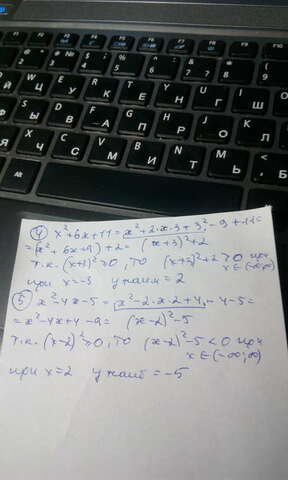 ④ x²+6x+11 = x²+2·x·3+3²-9+11=
=(x²+6x+9)+2= (x+3)²+2
т.к. (x+3)²≥0, то (x+3)²+2 ≥0 при
x∈(-∞;∞)
при x=-3 y наим = 2
⑤ x²-4x-5= x²-2·x·2+4-4-5=
=x²-4x+4-9= (x-2)²-5
т.к. (x-2)²≥0, то (x-2)²-5<0 при
x∈(-∞;∞)
при x=2 y наиб =-5